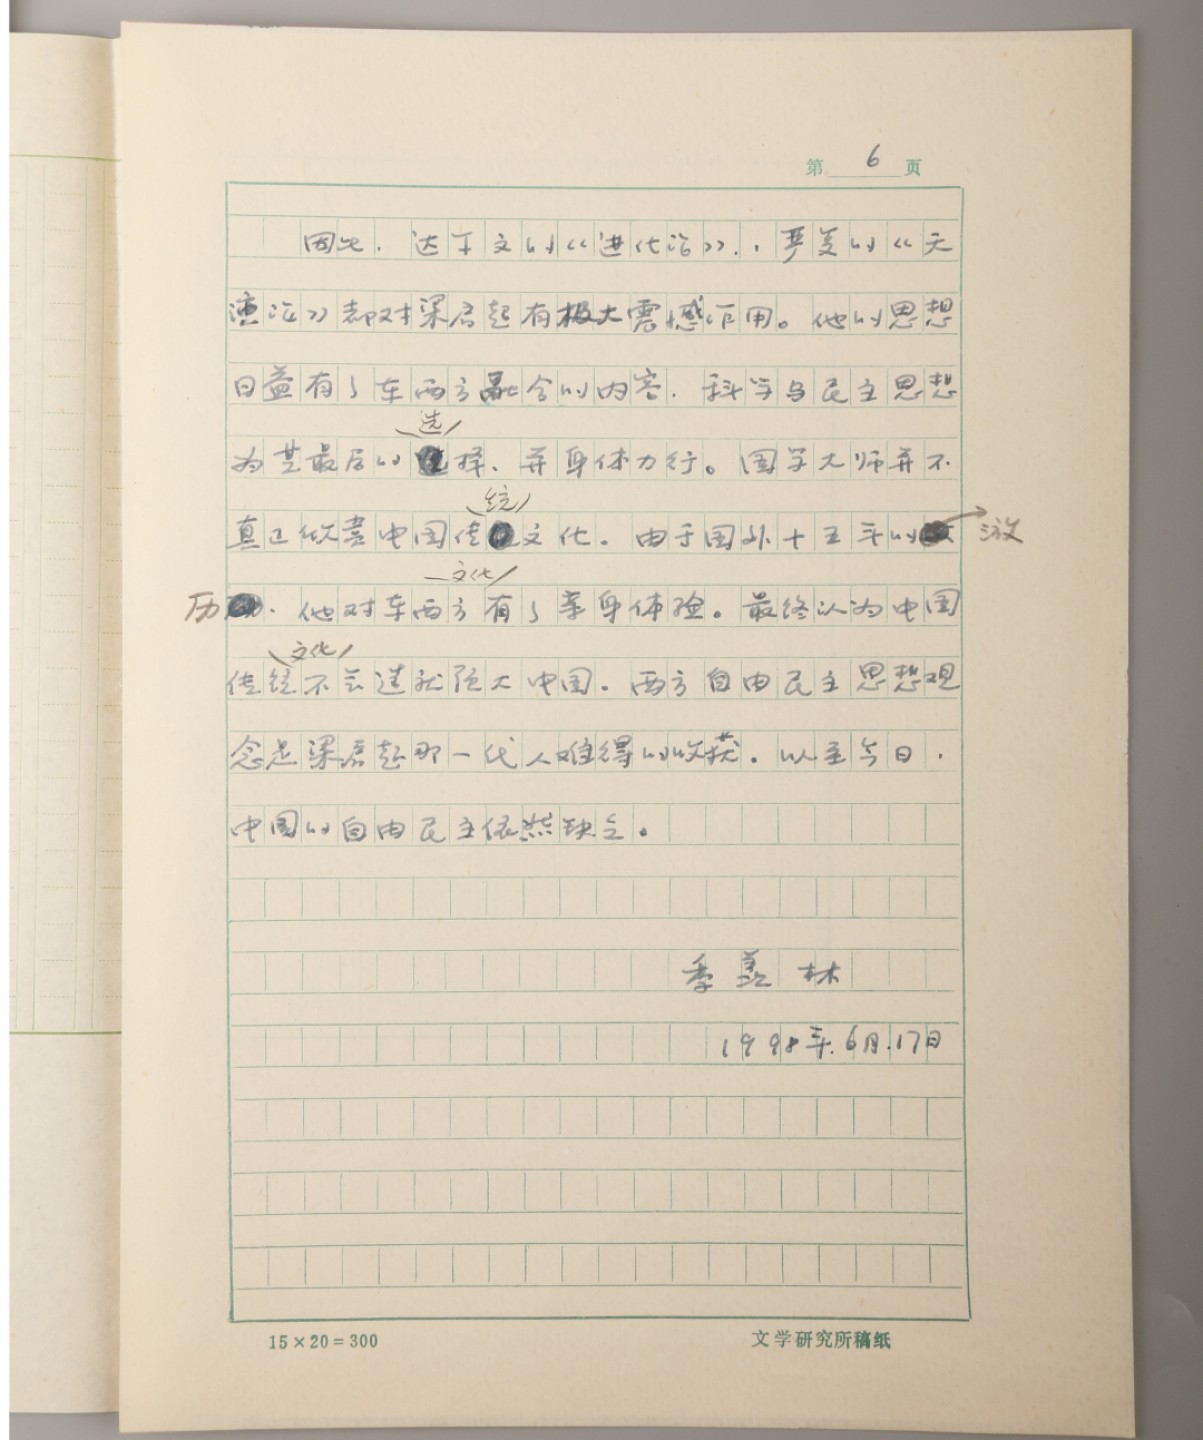 第 6 页
因此，达尔文的《进化论》，严复的《天
演论》都对梁启超有极大震憾作用。他的思想
日益有了东西方融合的内容，科学与民主思想
选
为其最后的择，并身体力行。国学大师并不
统
真正欣赏中国传文化。由于国外十五年的 游
文化
历，他对东西方有了亲身体验。最终认为中国
文化
传统不会造就强大中国。西方自由民主思想观
念是梁启超那一代人难得的收获。以至今日，
中国的自由民主依然缺乏。
季羡林
1998年.6月.17日
15×20=300 文学研究所稿纸